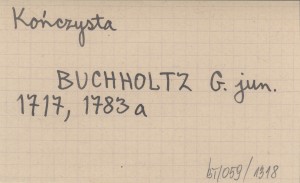 Kończysta
BUCHHOLTZ G. jun.
1717, 1783a
bT/059/1318